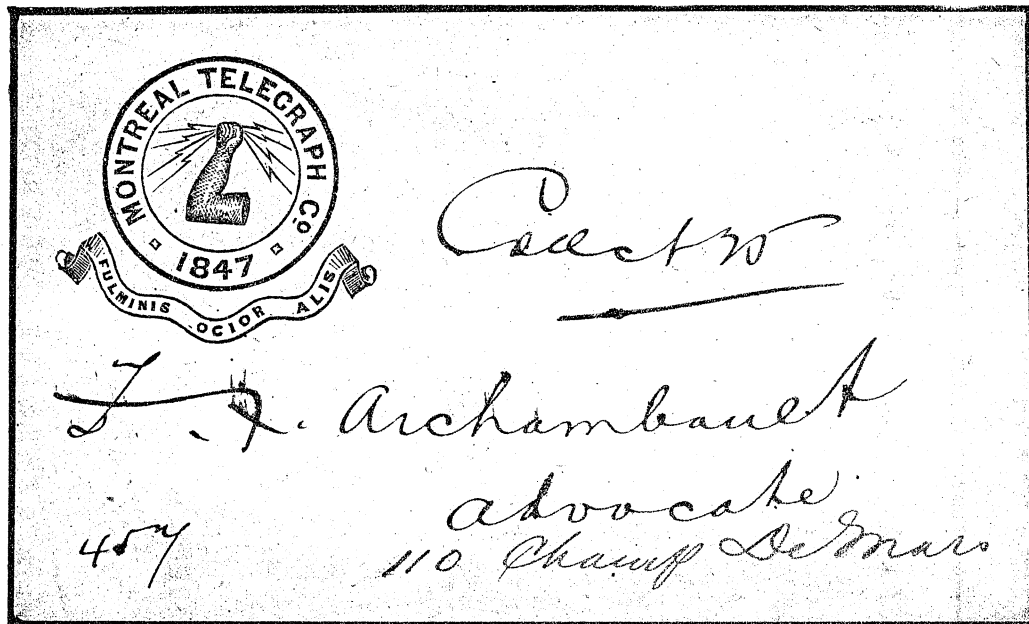 MONTREAL TELEGRAPH Co
1847
FULMINIS OCIOR ALIS
Collect 25
Archambault
advocate
457
110 Champ De Mars